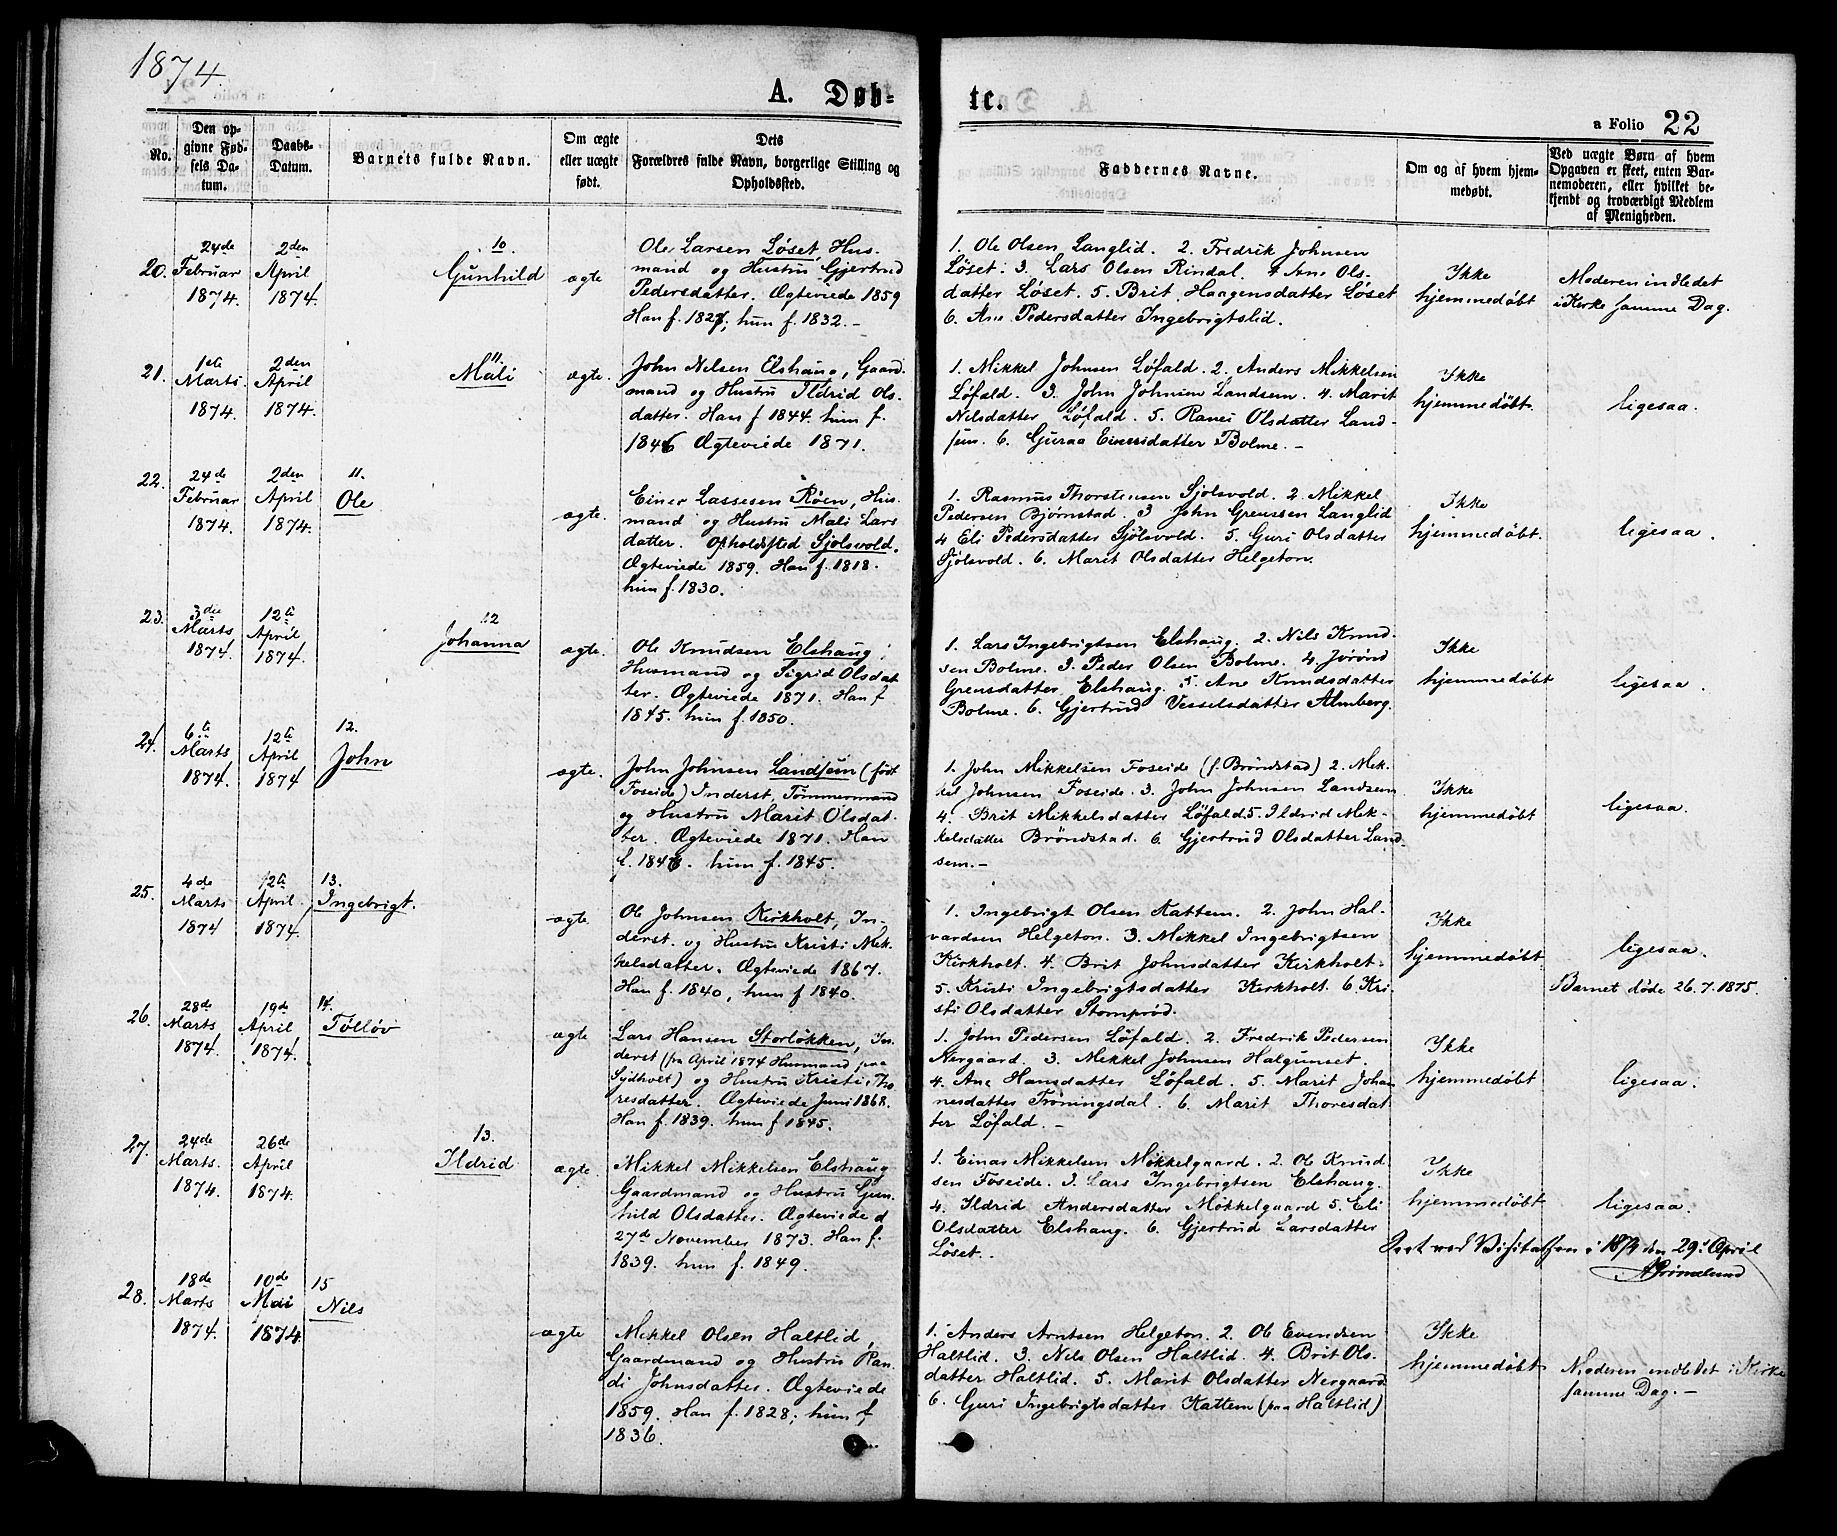 1874.
A. Døb-
te.
a Folio 22
No.
Den op-
givne Fød-
sels Da-
tum.
Daabs-
Datum.
Barnets fulde Navn.
Om ægte
eller uægte
født.
Dets
Forældres fulde Navn, borgerlige Stilling og
Opholdssted.
Faddernes Navne.
Om og af hvem hjem-
medøbt.
Ved uægte Børn af hvem
Opgaven er skeet, enten Bar-
nemoderen, eller hvilket be-
kjendt og troværdigt Medlem
af Menigheden.
20.
24de
Februar
1874.
2den
April
1874.
10.
Gunhild
ægte
Ole Larsen Løset, Hus-
mand og Hustru Gjertrud
Pedersdatter. Ægteviede 1859
Han f. 1827, hun f. 1832. -
1. Ole Olsen Langlid. 2. Fredrik Johnsen
Løset. 3. Lars Olsen Rindal. 4 Ane Ols-
datter Løset. 5. Brit Haagensdatter Løset
6. Ane Pedersdatter Ingebrigtslid.
Ikke
hjemmedøbt
Moderen indledet
i Kirke samme Dag.
21.
1ste
Marts.
1874.
2den
April
1874.
11.
Mali
ægte.
John Nilsen Elshaug, Gaard-
mand og Hustru Ildrid Ols-
datter. Han f 1844. hun f.
1846 Ægteviede 1871.
1. Mikkel Johnsen Løfald. 2. Anders Mikkelsen
Løfald. 3. John Johnsen Landsem. 4. Marit
Nilsdatter Løfald. 5. Ranei Olsdatter Land-
sem. 6. Guraa Einersdatter Bolme. -
Ikke
hjemmedøbt.
ligesaa.
22.
24de
Februar
1874.
2den
April
1874.
11.
Ole
ægte.
Einer Lassesen Røen, Hus-
mand og Hustru Mali Lars
datter. Opholdssted Sjølsvold.
Ægteviede 1859. Han f. 1818.
hun f. 1830.
1. Rasmus Thorstensen Sjolsvold. 2. Mikkel
Pedersen Bjørnstad. 3 John Grenssen Langlid
4 Eli Pedersdatter Sjølsvold. 5. Guri Olsdatter
Sjølsvold. 6. Marit Olsdatter Helgeton.
Ikke
hjemmedøbt.
ligesaa.
23.
3die
Marts
1874.
12te
April
1874.
12
Johanna
ægte.
Ole Knudsen Elshaug,
Husmand og Sigrid Olsdat
ter. Ægteviede 1871. Han f
1845. hun f. 1850.
1. Lars Ingebrigtsen Elshaug. 2. Nils Knud-
sen Bolme. 3. Peder Olsen Bolme. 4. Jørønd
Grensdatter Elshaug. 5. Ane Knudsdatter
Bolme. 6. Gjertrud Vesselsdatter Almberg.
Ikke
hjemmedøbt
ligesaa.
24.
6te
Marts
1874.
12te
April
1874
12.
John
ægte.
John Johnsen Landsem (født
Foseide) Inderst, Tømmermand
og Hustru Marit Olsdat-
ter. Ægteviede 1871. Han
f. 1846. hun f. 1845.
1. John Mikkelsen Foseide (f. Brøndstad) 2. Mik-
kel Johnsen Foseide. 3. John Johnsen Landsem
4. Brit Mikkelsdatter Løfald. 5. Ildrid Mik-
kelsdatter Brøndstad. 6. Gjertrud Olsdatter Land-
sem. -
Ikke
hjemmedøbt
ligesaa.
25.
4de
Marts
1874
12te
April
1874.
13.
Ingebrigt.
ægte
Ole Johnsen Kirkholt, In-
derst. og Hustru Kristi Mik-
kelsdatter. Ægteviede 1867.
Han f. 1840, hun f 1840.
1. Ingebrigt Olsen Kattem. 2. John Hal-
vardsen Helgeton. 3. Mikkel Ingebrigtsen
Kirkholt. 4. Brit Johnsdatter Kirkholt.
5. Kristi Ingebrigtsdatter Kirkholt. 6. Kri-
sti Olsdatter Stomprød.
Ikke
hjemmedøbt
ligesaa.
Barnet døde 26.7.1875.
26.
28de
Marts
1874.
19de
April
1874.
14.
Tølløv
ægte
Lars Hansen Storløkken, In-
derst (fra April 1874 Husmand paa
Sydholt) og Hustru Kristi Tho-
resdatter. Ægteviede Juni 1868.
Han f. 1839. hun f 1845.
1. John Pedersen Løfald. 2. Fredrik Pedersen
Nergaard. 3. Mikkel Johnsen Halgunset.
4. Ane Hansdatter Løfald. 5. Marit Johan
nesdatter Trøningsdal. 6. Marit Thoresdat
ter Løfald. -
Ikke
hjemmedøbt
ligesaa.
27.
24de
Marts.
1874.
26de
April
1874.
13.
Ildrid
ægte
Mikkel Mikkelsen Elshaug
Gaardmand og Hustru Gun-
hild Olsdatter. Ægteviede d
27de November 1873. Han f.
1839. hun f. 1849.
1. Einar Mikkelsen Møkkelgaard. 2. Ole Knud
sen Foseide. 3. Lars Ingebrigtsen Elshaug.
4. Ildrid Andersdatter Møkkelgaard 5. Eli
Olsdatter Elshaug. 6. Gjertrud Larsdatter
Løset.
Ikke
hjemmedøbt
ligesaa.
Seet ved Visitatsen i 1874 den 29de April
AGrimelund
28.
18de
Marts
1874.
10de
Mai
1874.
15
Nils
ægte
Mikkel Olsen Haltlid,
Gaardmand og Hustru Ran-
di Johnsdatter. Ægteviede
1859. Han f. 1828; hun f
1836.
1. Anders Arntsen Helgeton. 2. Ole Evendsen
Haltlid. 3. Nils Olsen Haltlid. 4. Brit Ols-
datter Haltlid. 5. Marit Olsdatter Nergaard
6. Guri Ingebrigtsdatter Kattem (paa Haltlid)
Ikke
hjemmedøbt
Moderen indledet i Kirke
samme Dag. -